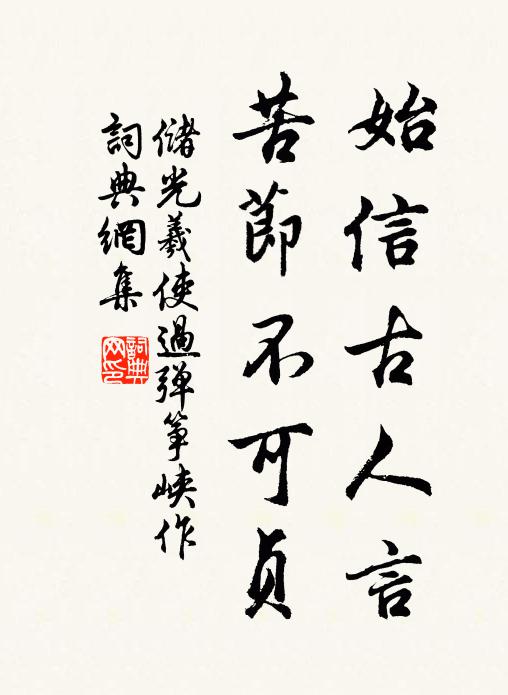 始信古人言
苦節不可貞
儲光羲使過彈箏峽作
詞典網集
詞典
网印